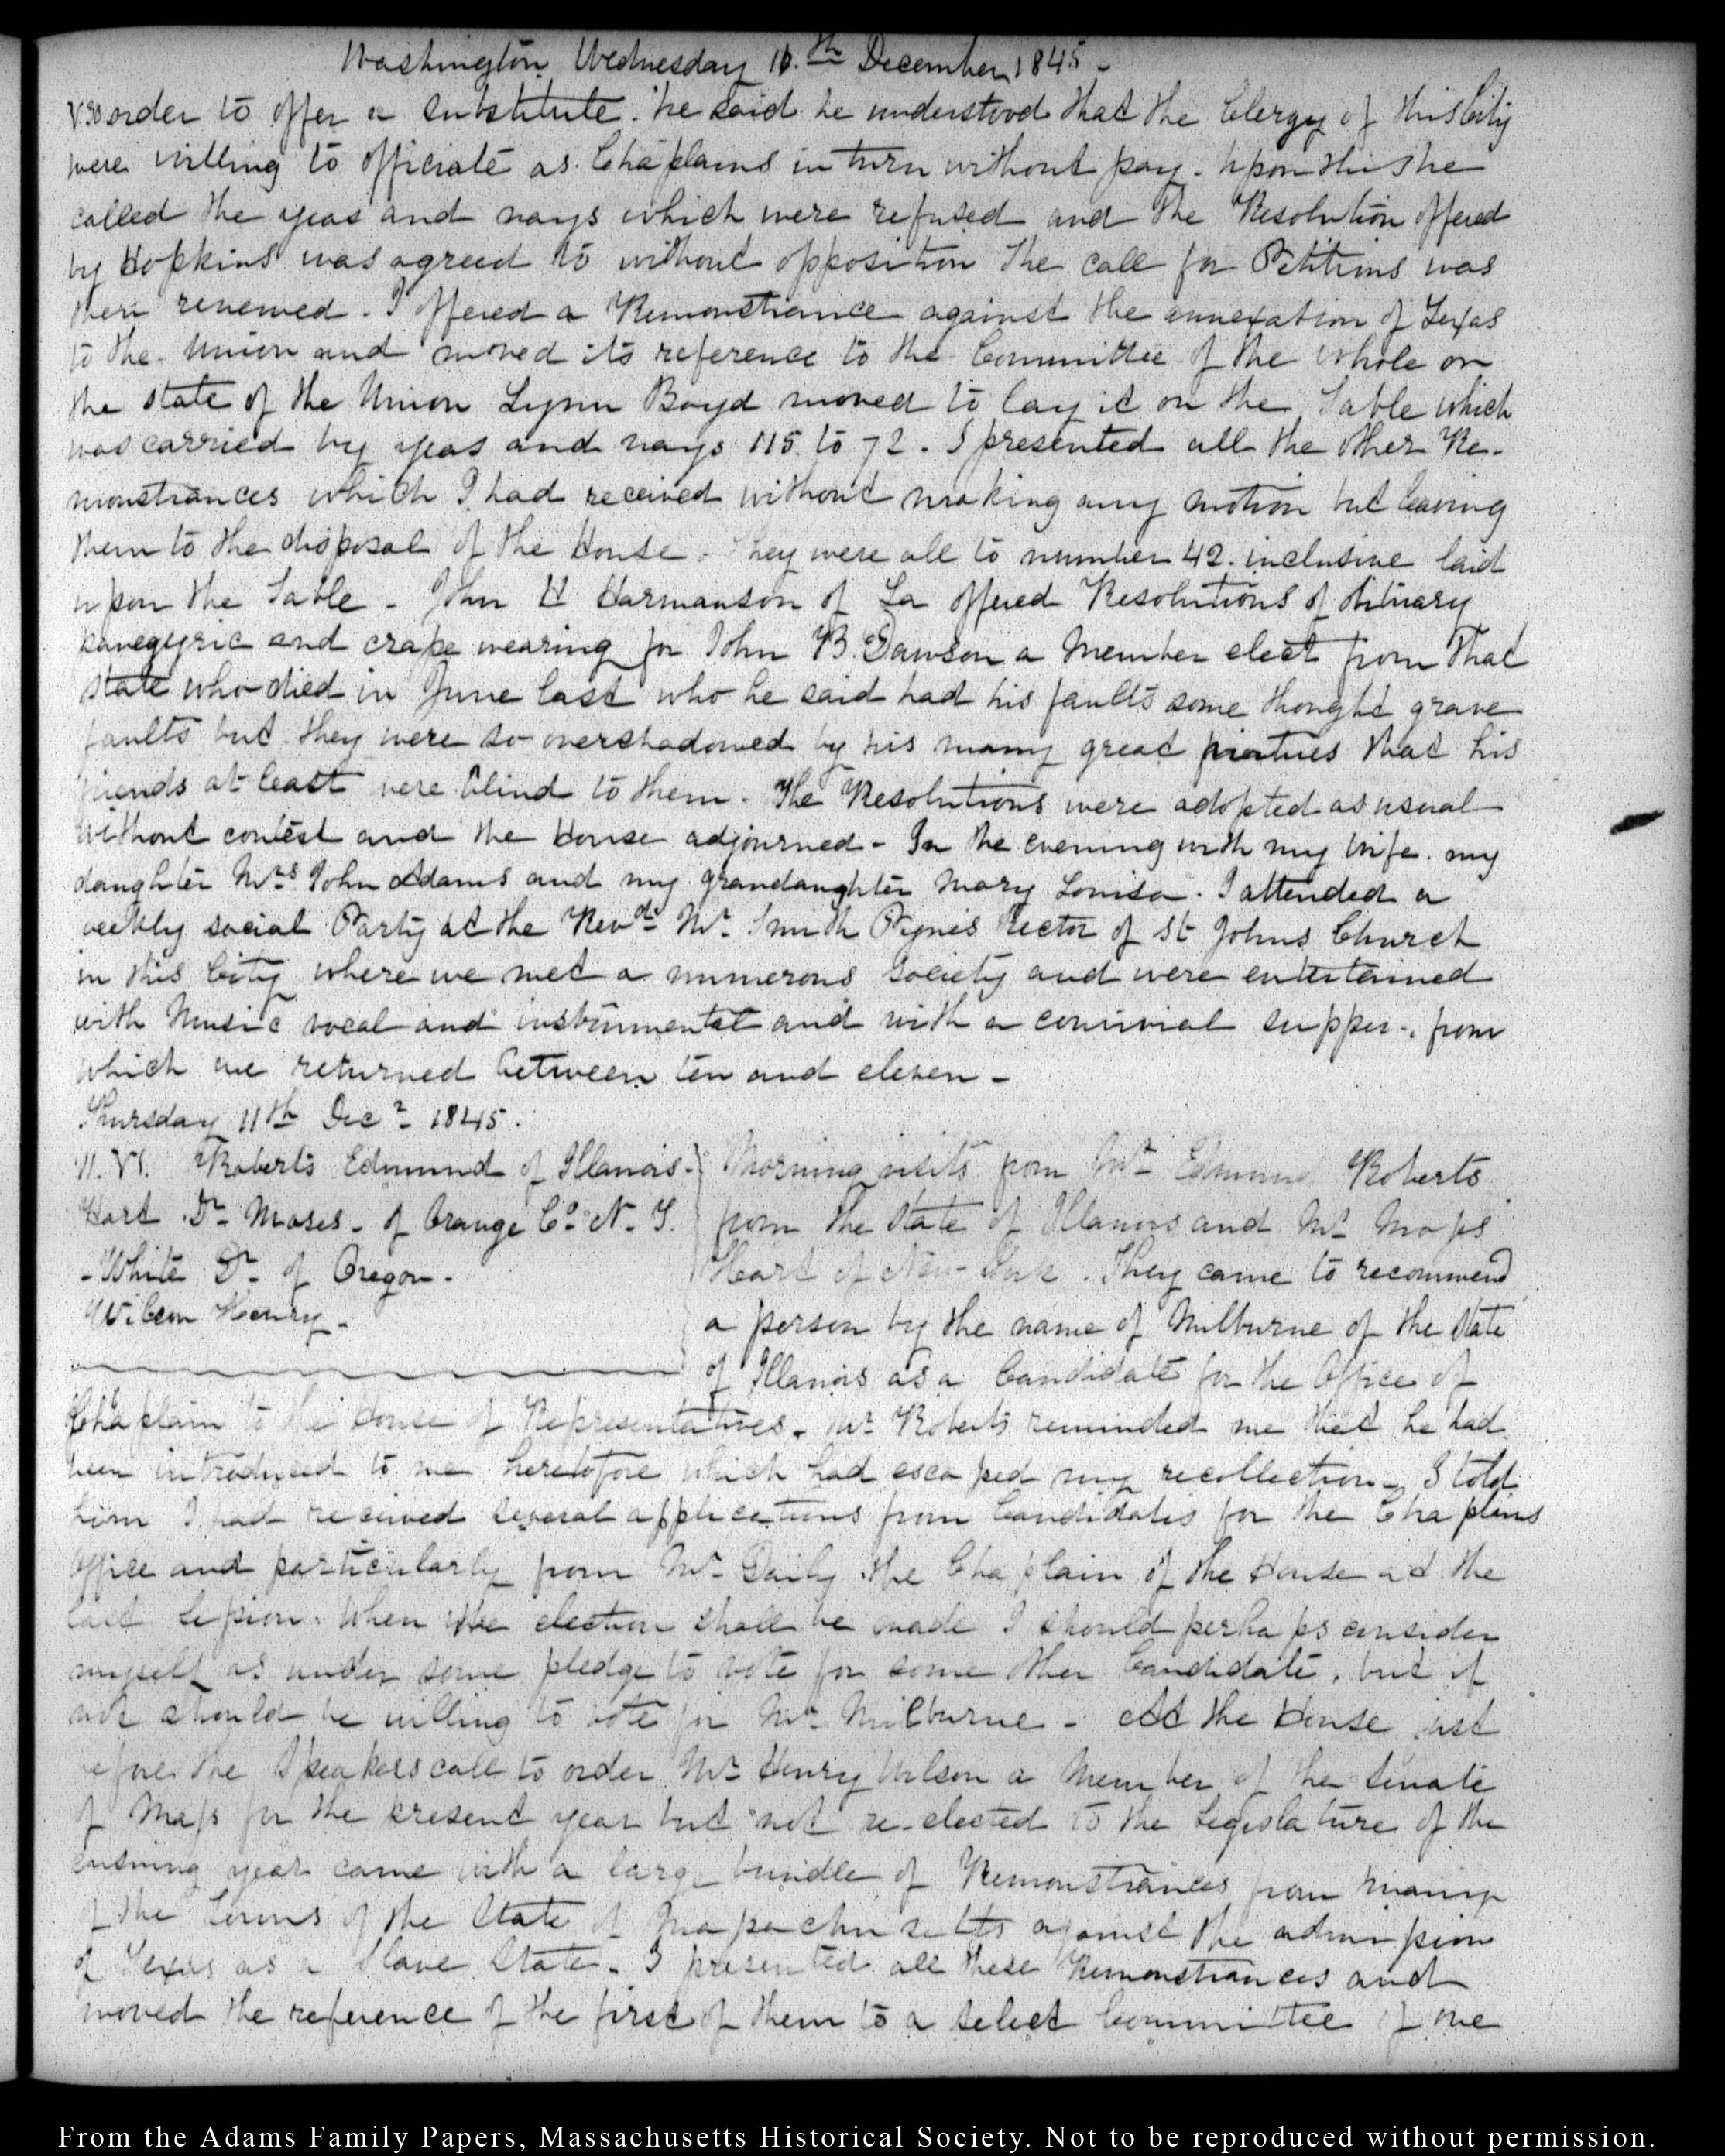 Washington Wednesday 10.th December 1845 -
order to offer a substitute. he said he understood that the Clergy of this City
were willing to officiate as Chaplains in turn without pay - Upon this he
called the yeas and nays which were refused and the Resolution offered
by Hopkins was agreed to without opposition The call for Petitions was
then renewed. I offered a Remonstrance against the annexation of Texas
to the Union and moved its reference to the Committee of the whole on
the state of the Union Lynn Boyd moved to lay it on the Table which
was carried by yeas and nays 115. to 72. I presented all the other Re-
monstrances which I had received without making any motion but leaving
them to the disposal of the House. They were all to number 42. inclusive laid
upon the Table - John H Harmanson of La offered Resolutions of obituary
panegyric and crape wearing for John B. Dawson a Member elect from that
state who died in June last who he said had his faults some thought grave
faults but they were so overshadowed by his many great virtues that his
friends at least were blind to them. The Resolutions were adopted as usual
without contest and the House adjourned - In the evening with my Wife. my
daughter Mrs John Adams and my grandaughter Mary Louisa. I attended a
weekly social Party at the Revd. Mr. Smith Pynes Rector of St Johns Church
in this City where we met a numerous society and were entertained
with Music vocal and instrumental and with a convivial supper -, from
which we returned between ten and eleven -
Thursday 11th Decr 1845.
Roberts Edmund of Illanois -
Hart Dr Moses - of Orange Co. N. Y.
- White Dr of Oregon -
Wilson Henry -
Morning visits from Mr Edmund Roberts
from the State of Illanois and Mr Moses
Heart of New-York. They came to recommend
a person by the name of Milburne of the State
of Illanois as a Candidate for the Office of
Chaplain to the House of Representatives. Mr Roberts reminded me that he had
been introduced to me heretofore which had escaped my recollection - I told
him I had received several applications from Candidates for the Chaplains
Office and particularly from Mr Daily the Chaplain of the House at the
last session. When the election shall be made I should perhaps consider
myself as under some pledge to vote for some other Candidate, but if
not should be willing to vote for Mr Milburne - At the House just
before the Speakers call to order Mr Henry Wilson a Member of the Senate
of Mass for the present year but not re-elected to the Legislature of the
ensuing year came with a large bundle of Remonstrances from many
of the Towns of the State of Massachusetts against the admission
of Texas as a Slave State - I presented all these Remonstrances and
moved the reference of the first of them to a select Committee of one
From the Adams Family Papers, Massachusetts Historical Society. Not to be reproduced without permission.